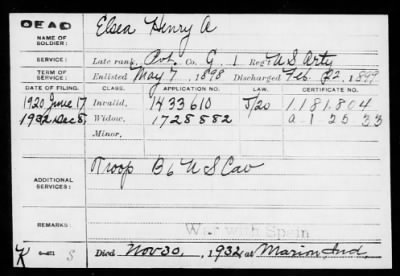 DEAD
NAME OF SOLDIER: Elsea Henry A
SERVICE: Late rank, Pvt. Co. G, 1 Reg't U S Arty
TERM OF SERVICE: Enlisted May 7, 1898 Discharged Feb. 22, 1899
DATE OF FILING. CLASS. APPLICATION NO. LAW. CERTIFICATE NO.
1920 June 17 Invalid, 1433610 J/20 1.181.804
1932 Dec 8 Widow, 1728882 a 1 25 33
Minor,
ADDITIONAL SERVICES: Troop B 6 U S Cav
REMARKS: War with Spain
K S
Died Nov 30, 1932, at Marion, Ind.